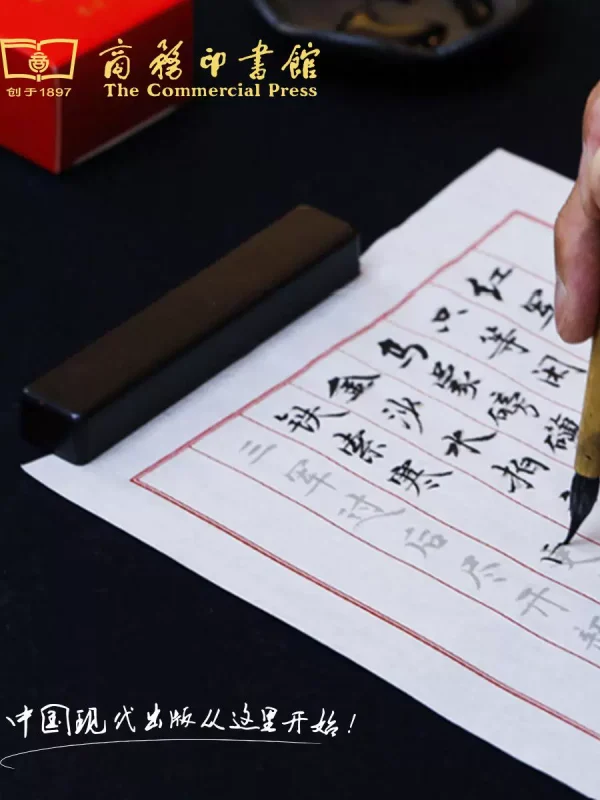 商務印書館
创于1897 The Commercial Press
红军
只等闲
乌蒙磅礴
金沙水拍
铁索寒更
三军过后尽开
中国现代出版从这里开始!